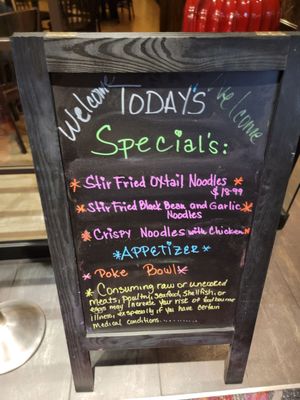 Welcome TODAY'S Welcome
Special's:
* Stir Fried Oxtail Noodles
$18.99
* Stir Fried Black Bean and Garlic
Noodles
* Crispy Noodles with Chicken
*APPETIZER*
* Poke Bowl*
* Consuming raw or uncooked
meats, poultry, seafood, shellfish, or
eggs may Increase your risk of foodbourne
illness, especially if you have certain
medical conditions...........